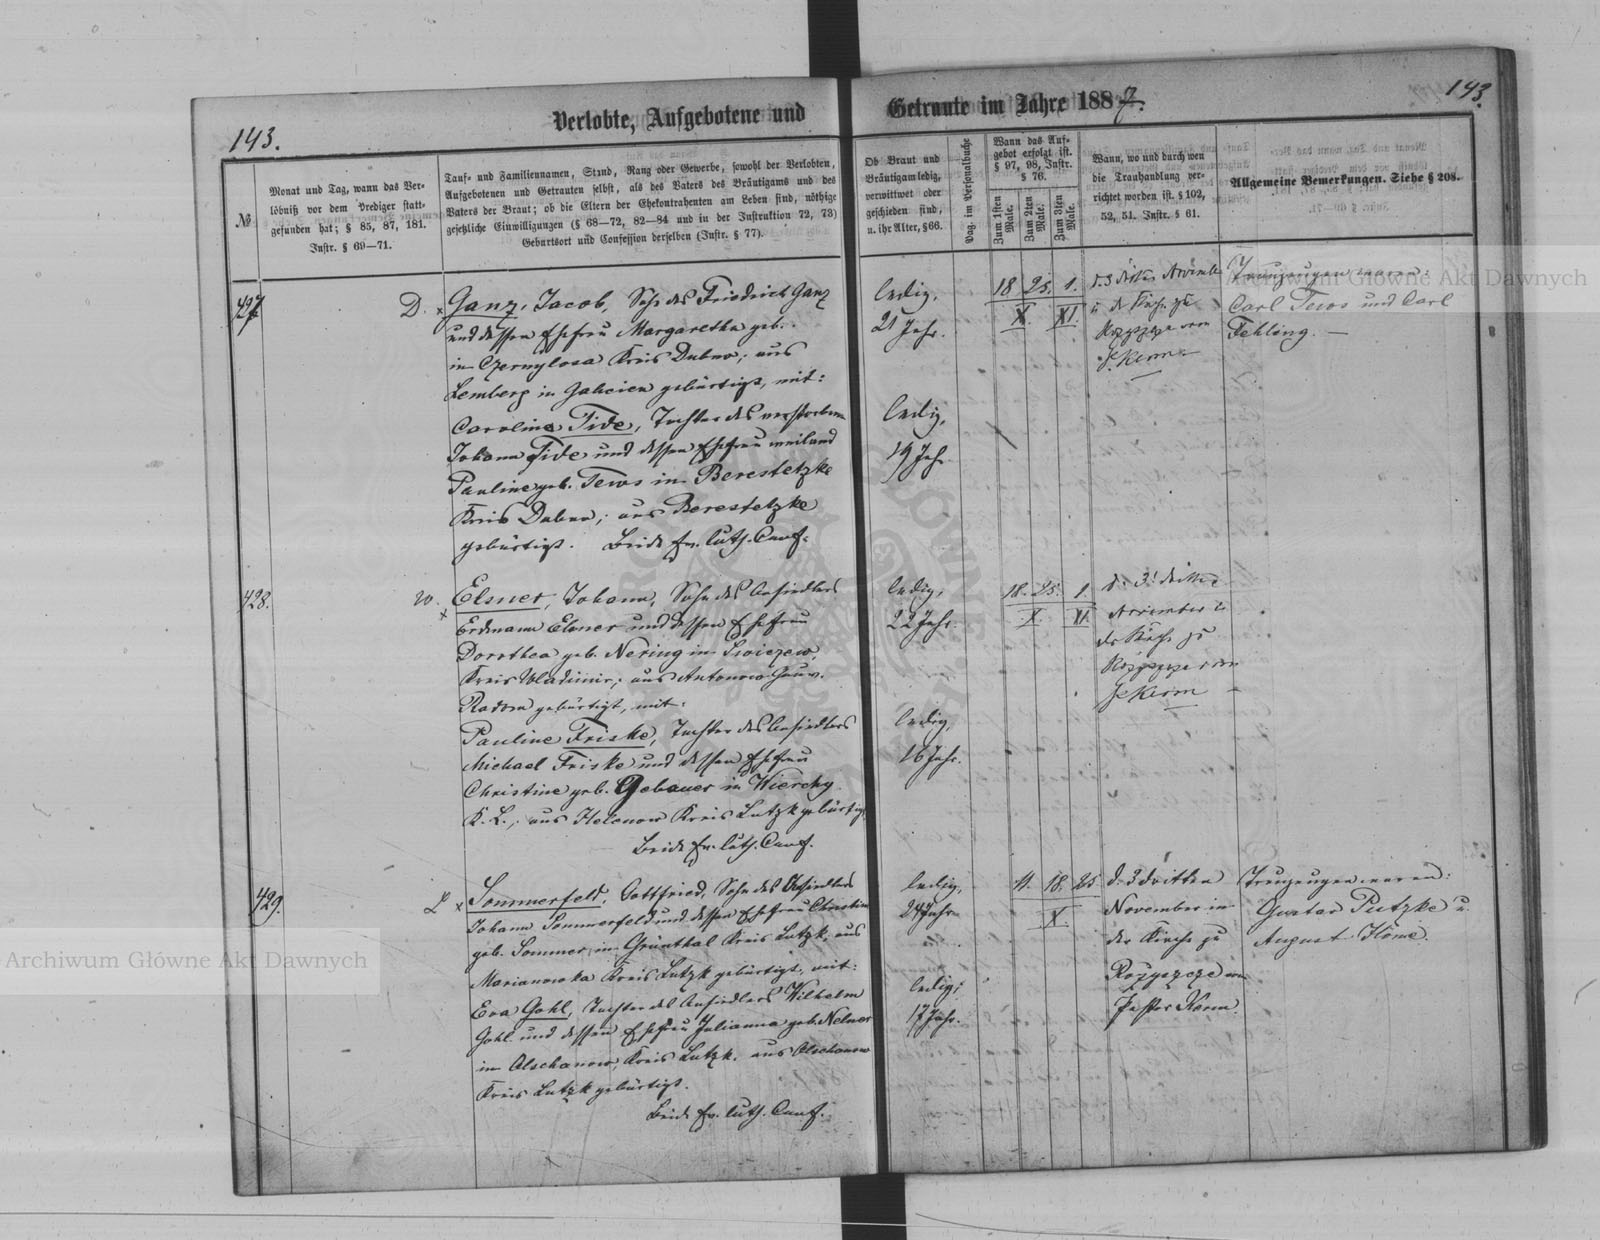 143.
Verlobte, Aufgebotene und
Getraute im Jahre 1887.
143.
№
Monat und Tag, wann das Ver-
löbniß vor dem Prediger statt-
gefunden hat; § 85, 87, 181.
Instr. § 69—71.
Tauf- und Familiennamen, Stand, Rang oder Gewerbe, sowohl der Verlobten,
Aufgebotenen und Getrauten selbst, als des Vaters des Bräutigams und des
Vaters der Braut; ob die Eltern der Ehekontrahenten am Leben sind, nöthige
gesetzliche Einwilligungen (§ 68—72, 82—84 und in der Instruktion 72, 73)
Geburtsort und Confession derselben (Instr. § 77).
Ob Braut und
Bräutigam ledig,
verwittwet oder
geschieden sind,
u. ihr Alter, § 66.
Pag. im Personalbuche
Wann das Auf-
gebot erfolgt ist.
§ 97, 98, Instr.
§ 76.
Zum 1sten Male.
Zum 2ten Male.
Zum 3ten Male.
Wann, wo und durch wen
die Trauhandlung ver-
richtet worden ist. § 102,
52, 51. Instr. § 61.
Allgemeine Bemerkungen. Siehe § 208.
427.
D. × Ganz, Jacob, Sohn des Friedrich Ganz
und dessen Ehefrau Margaretha geb.
in Czernylosa Kreis Dubno; aus
Lemberg in Galicien gebürtigt, mit:
Caroline Tide, Tochter des verstorbenen
Johann Tide und dessen Ehefrau weiland
Pauline geb. Tews in Berestetzke
Kreis Dubno; aus Berestetzke
gebürtigt. Beide Ev. luth. Conf.
ledig,
21 Jahr.
ledig,
19 Jahr.
18. 25. 1.
X. XI.
d. 3 dritten November
in der Kirche zu
Rozyszcze von
P. Kerm
Trauzeugen waren:
Carl Tews und Carl
Fehling. —
428.
W. × Elsner, Johann, Sohn des Ansiedlers
Erdmann Elsner und dessen Ehefrau
Dorothea geb. Nering in
Kreis Wladimir; aus Antonow Gouv.
Radom gebürtigt, mit:
Pauline Friske, Tochter des Ansiedlers
Michael Friske und dessen Ehefrau
Christine geb. Gebauer in Wierchy
K. L.; aus Helenow Kreis Lutzk gebürtigt
Beide Ev. luth. Conf.
ledig,
22 Jahr.
ledig,
16 Jahr.
18. 25. 1.
X. XI.
d. 3. dritten
November in
der Kirche zu
Rozyszcze von
P. Kerm —
429.
L × Sommerfeld, Gottfried, Sohn des Ansiedlers
Johann Sommerfeld und dessen Ehefrau Christine
geb. Sommer, in Grünthal Kreis Lutzk, aus
Marianowka Kreis Lutzk gebürtigt, mit:
Eva Gohl, Tochter des Ansiedlers Wilhelm
Gohl und dessen Ehefrau Julianna geb. Nelner
in Olschanow, Kreis Lutzk. aus Olschanow
Kreis Lutzk gebürtigt.
Beide Ev. luth. Conf.
ledig,
24 Jahr
ledig;
17 Jahr.
11. 18. 25
X.
d. 3 dritten
November in
der Kirche zu
Rozyszcze von
Pastor Kerm.
Trauzeugen waren:
Gustav Putzke u.
August Höme.
Archiwum Główne Akt Dawnych
Archiwum Główne Akt Dawnych